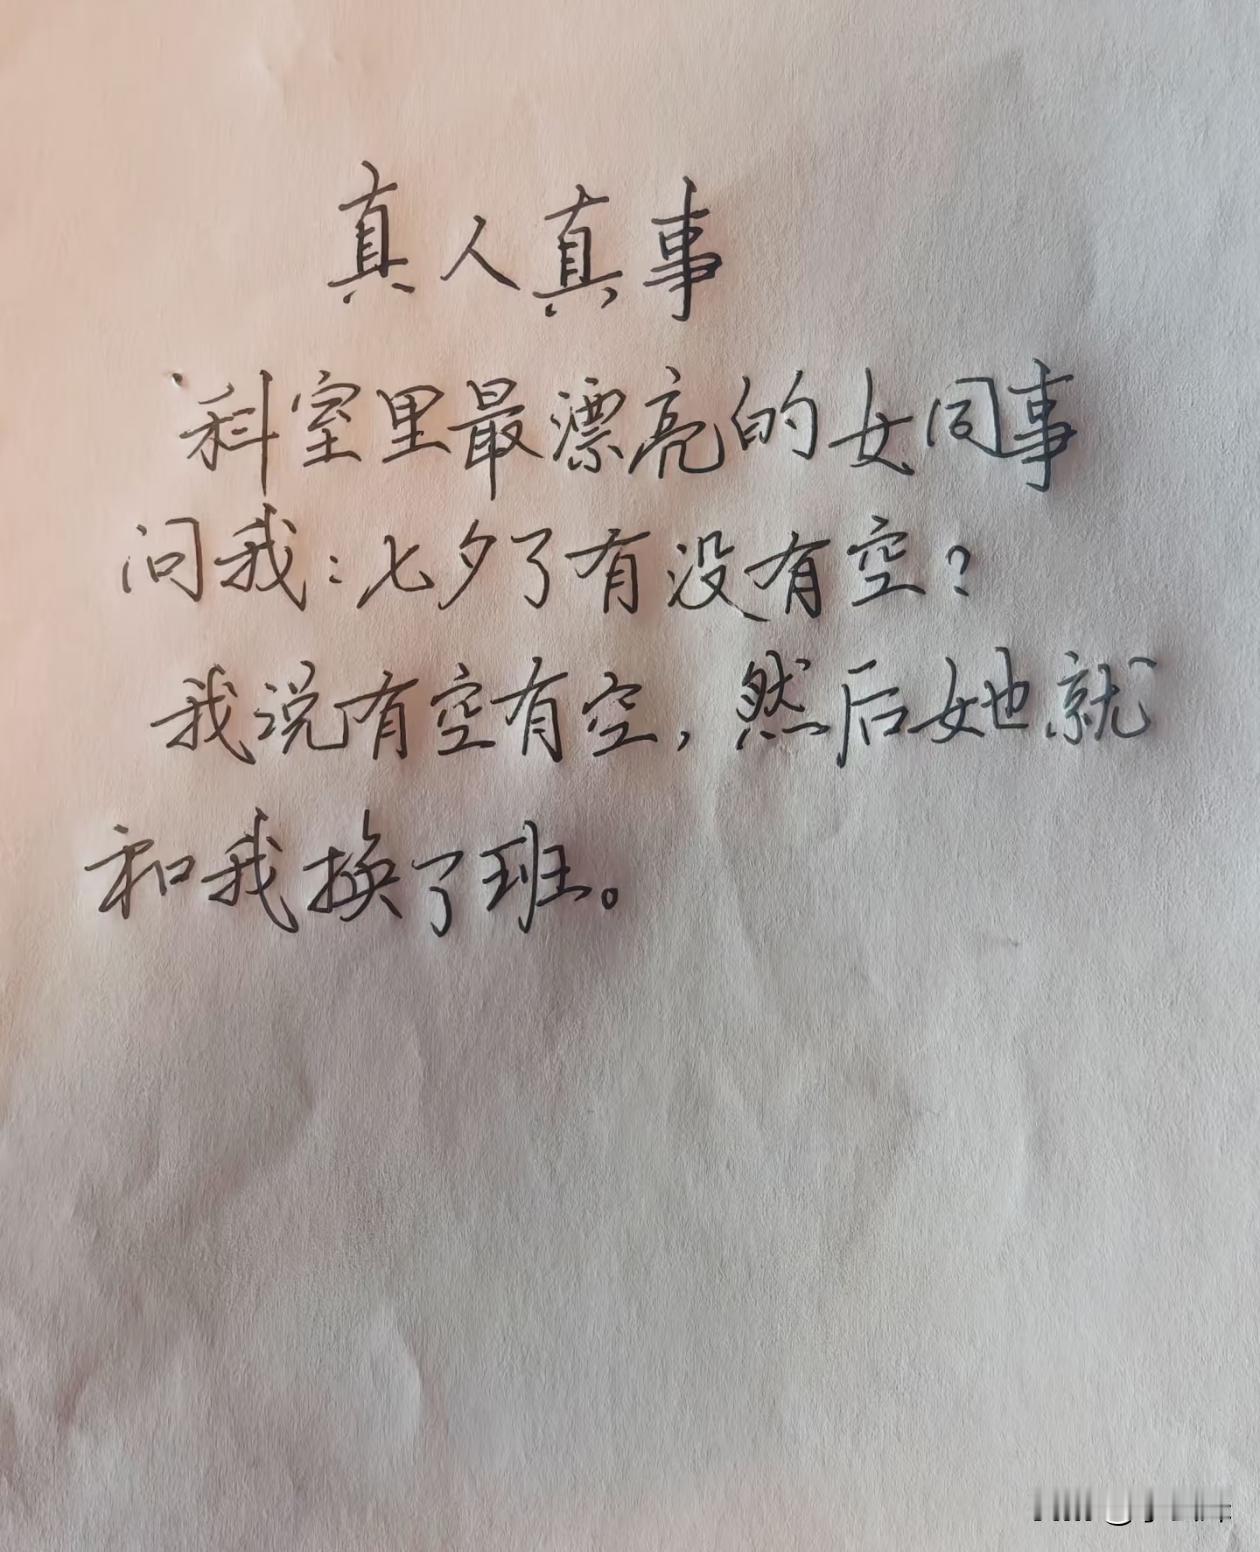 真人真事
科室里最漂亮的女同事
问我:七夕了有没有空?
我说有空有空,然后她就
和我换了班。